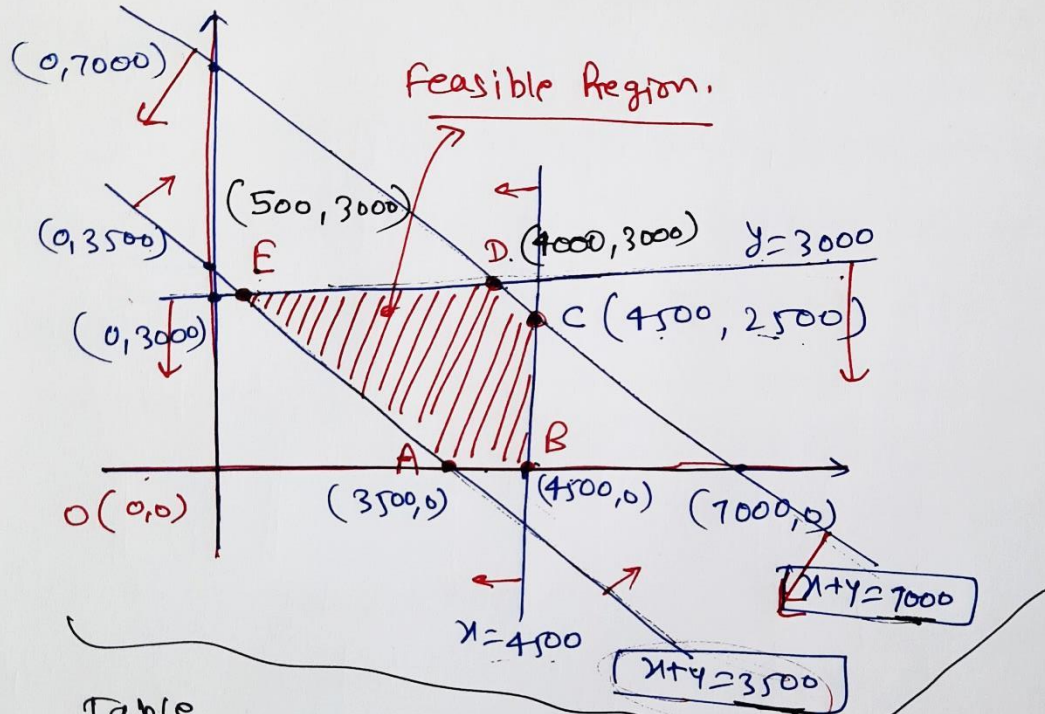 (0,7000)
Feasible Region.
(500,3000)
(0,3500)
E
D. (4000,3000)
y=3000
(0,3000)
C (4500, 2500)
A
B
O(0,0)
(3500,0)
(4500,0)
(7000,0)
x+y=7000
x=4500
x+y=3500
Table